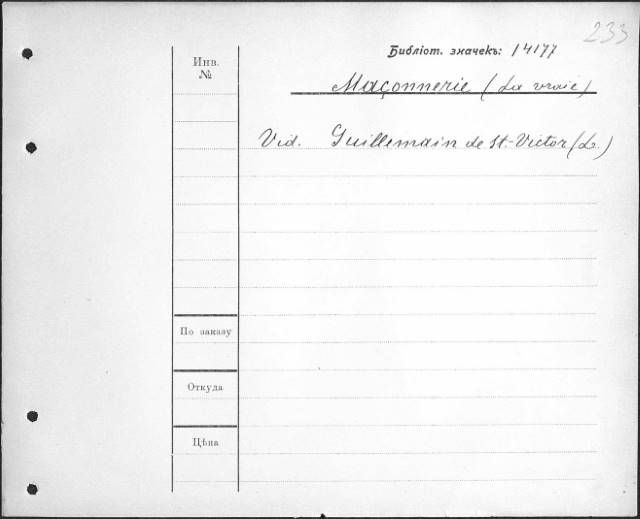 233
Библіот. значекъ: 14177
Инв.
№
Maçonnerie (La vraie)
Vid. Guillemain de St.-Victor (L.)
По заказу
Откуда
Цѣна